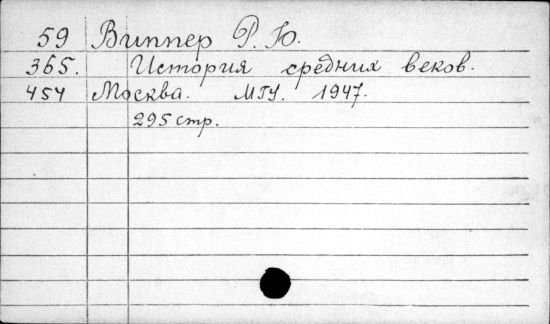 59 Виппер Р. Ю.
365. История средних веков.
454 Москва. МГУ. 1947.
295 стр.